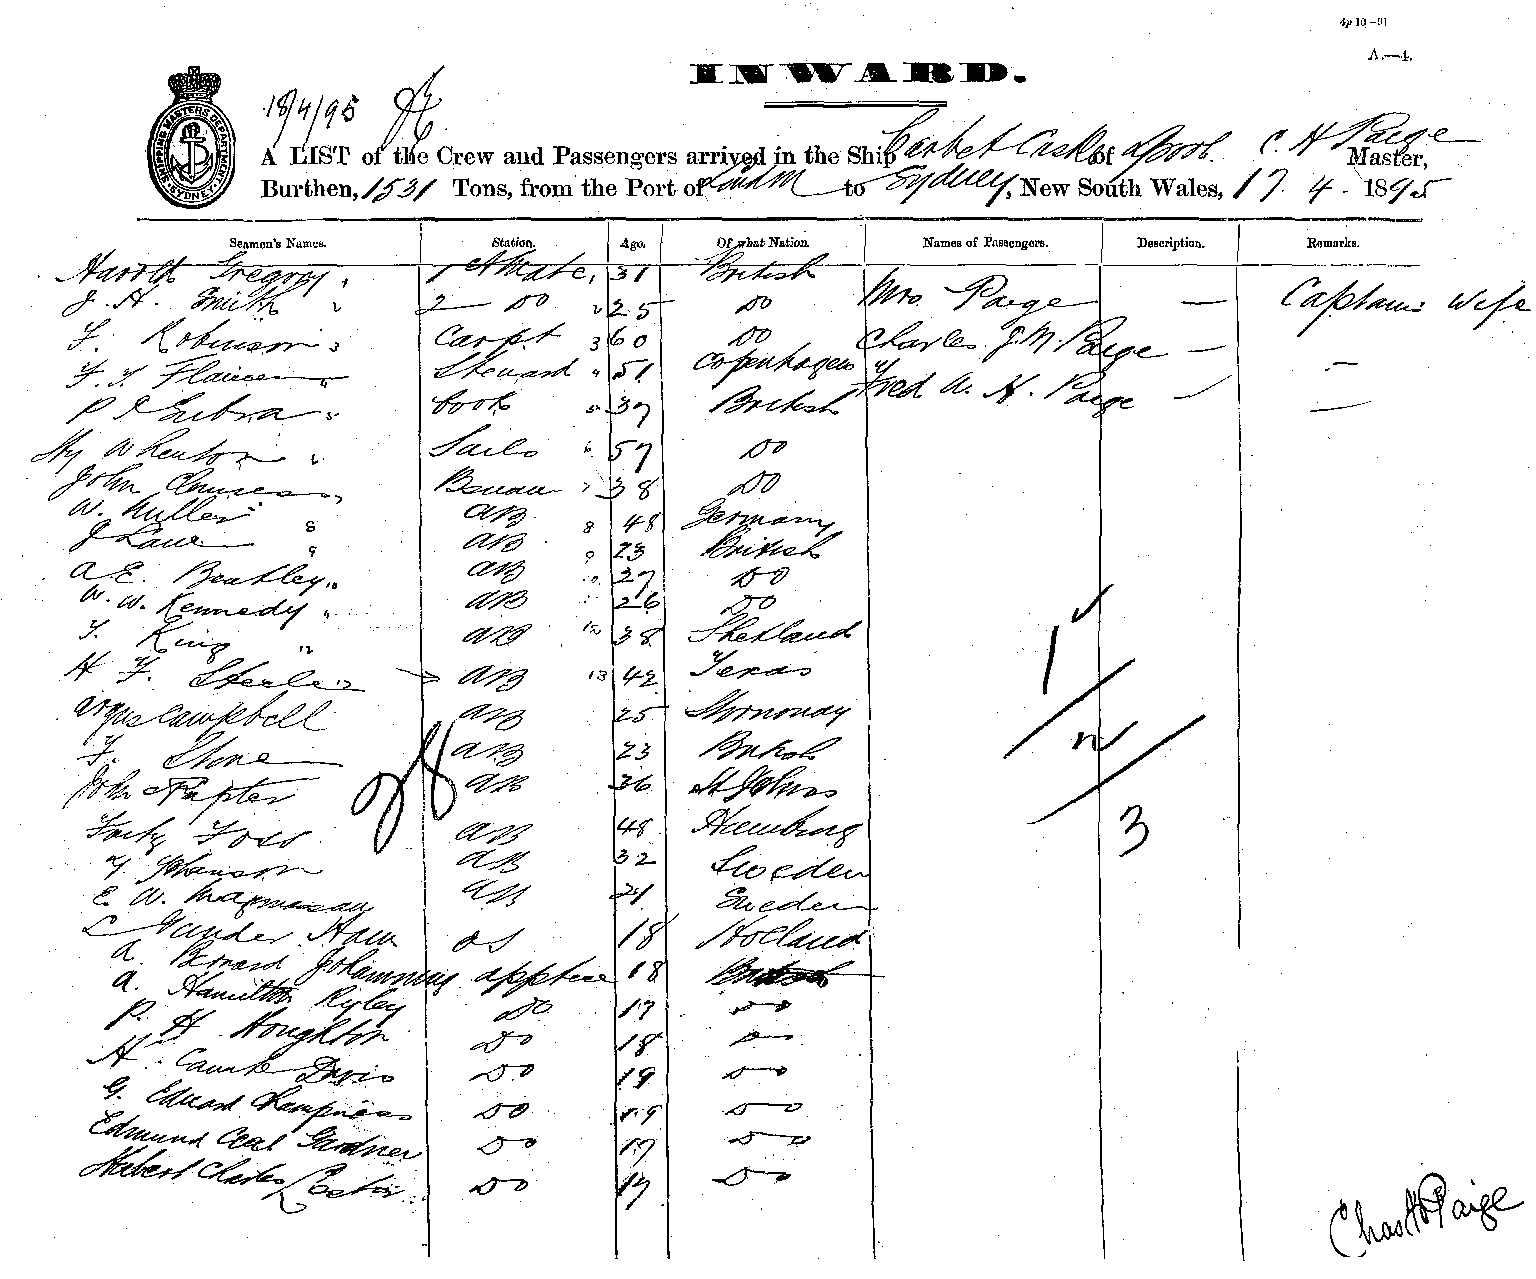 4p 10–91
A.—4.
INWARD.
SHIPPING MASTERS DEPARTMENT SYDNEY
18/4/95
A LIST of the Crew and Passengers arrived in the Ship Corbet Castle of C H Paige Master,
Burthen, 1531 Tons, from the Port of London to Sydney, New South Wales, 17. 4. 1895
Seamen's Names. Station. Age. Of what Nation. Names of Passengers. Description. Remarks.
Harold Gregory 1st Mate 31 British
J. H. Smith 2 Do 25 Do Mrs Paige — Captains Wife
F. Robinson Carpt 3 60 Do Charles J. M. Paige — —
F. J. Steward 51 Copenhagen Fred A. H. Paige —
P Cook 37 British
Hy Wheaton Sails 6 57 Do
John 38 Do
W. Muller 8 AB 8 48 Germany
J Lane 9 AB 9 23 British
A E. Bentley AB 10 27 Do
W. W. Kennedy AB 26 Do
T. King 12 AB 12 38 Shetland
H F. Steele AB 13 42 Texas
Argus Campbell AB 25 Stornoway
F. Stone AB 23 British
John Napter AB 36 St Johns
Fritz Foss AB 48 Hamburg
Johanson AB 32 Sweden
E. W. Magnusan AB 21 Sweden
Vander Ham OS 18 Holland
A. Bernard apptice 18 British
A. Hamilton Ryley Do 17 Do
P. H. Houghton Do 18 Do
H. Davis Do 19 Do
G. Edward Champness Do 19 Do
Edmund Cecil Gardner Do 17 Do
Hubert Charles Do 17 Do
28
1
2
3
Chas H Paige